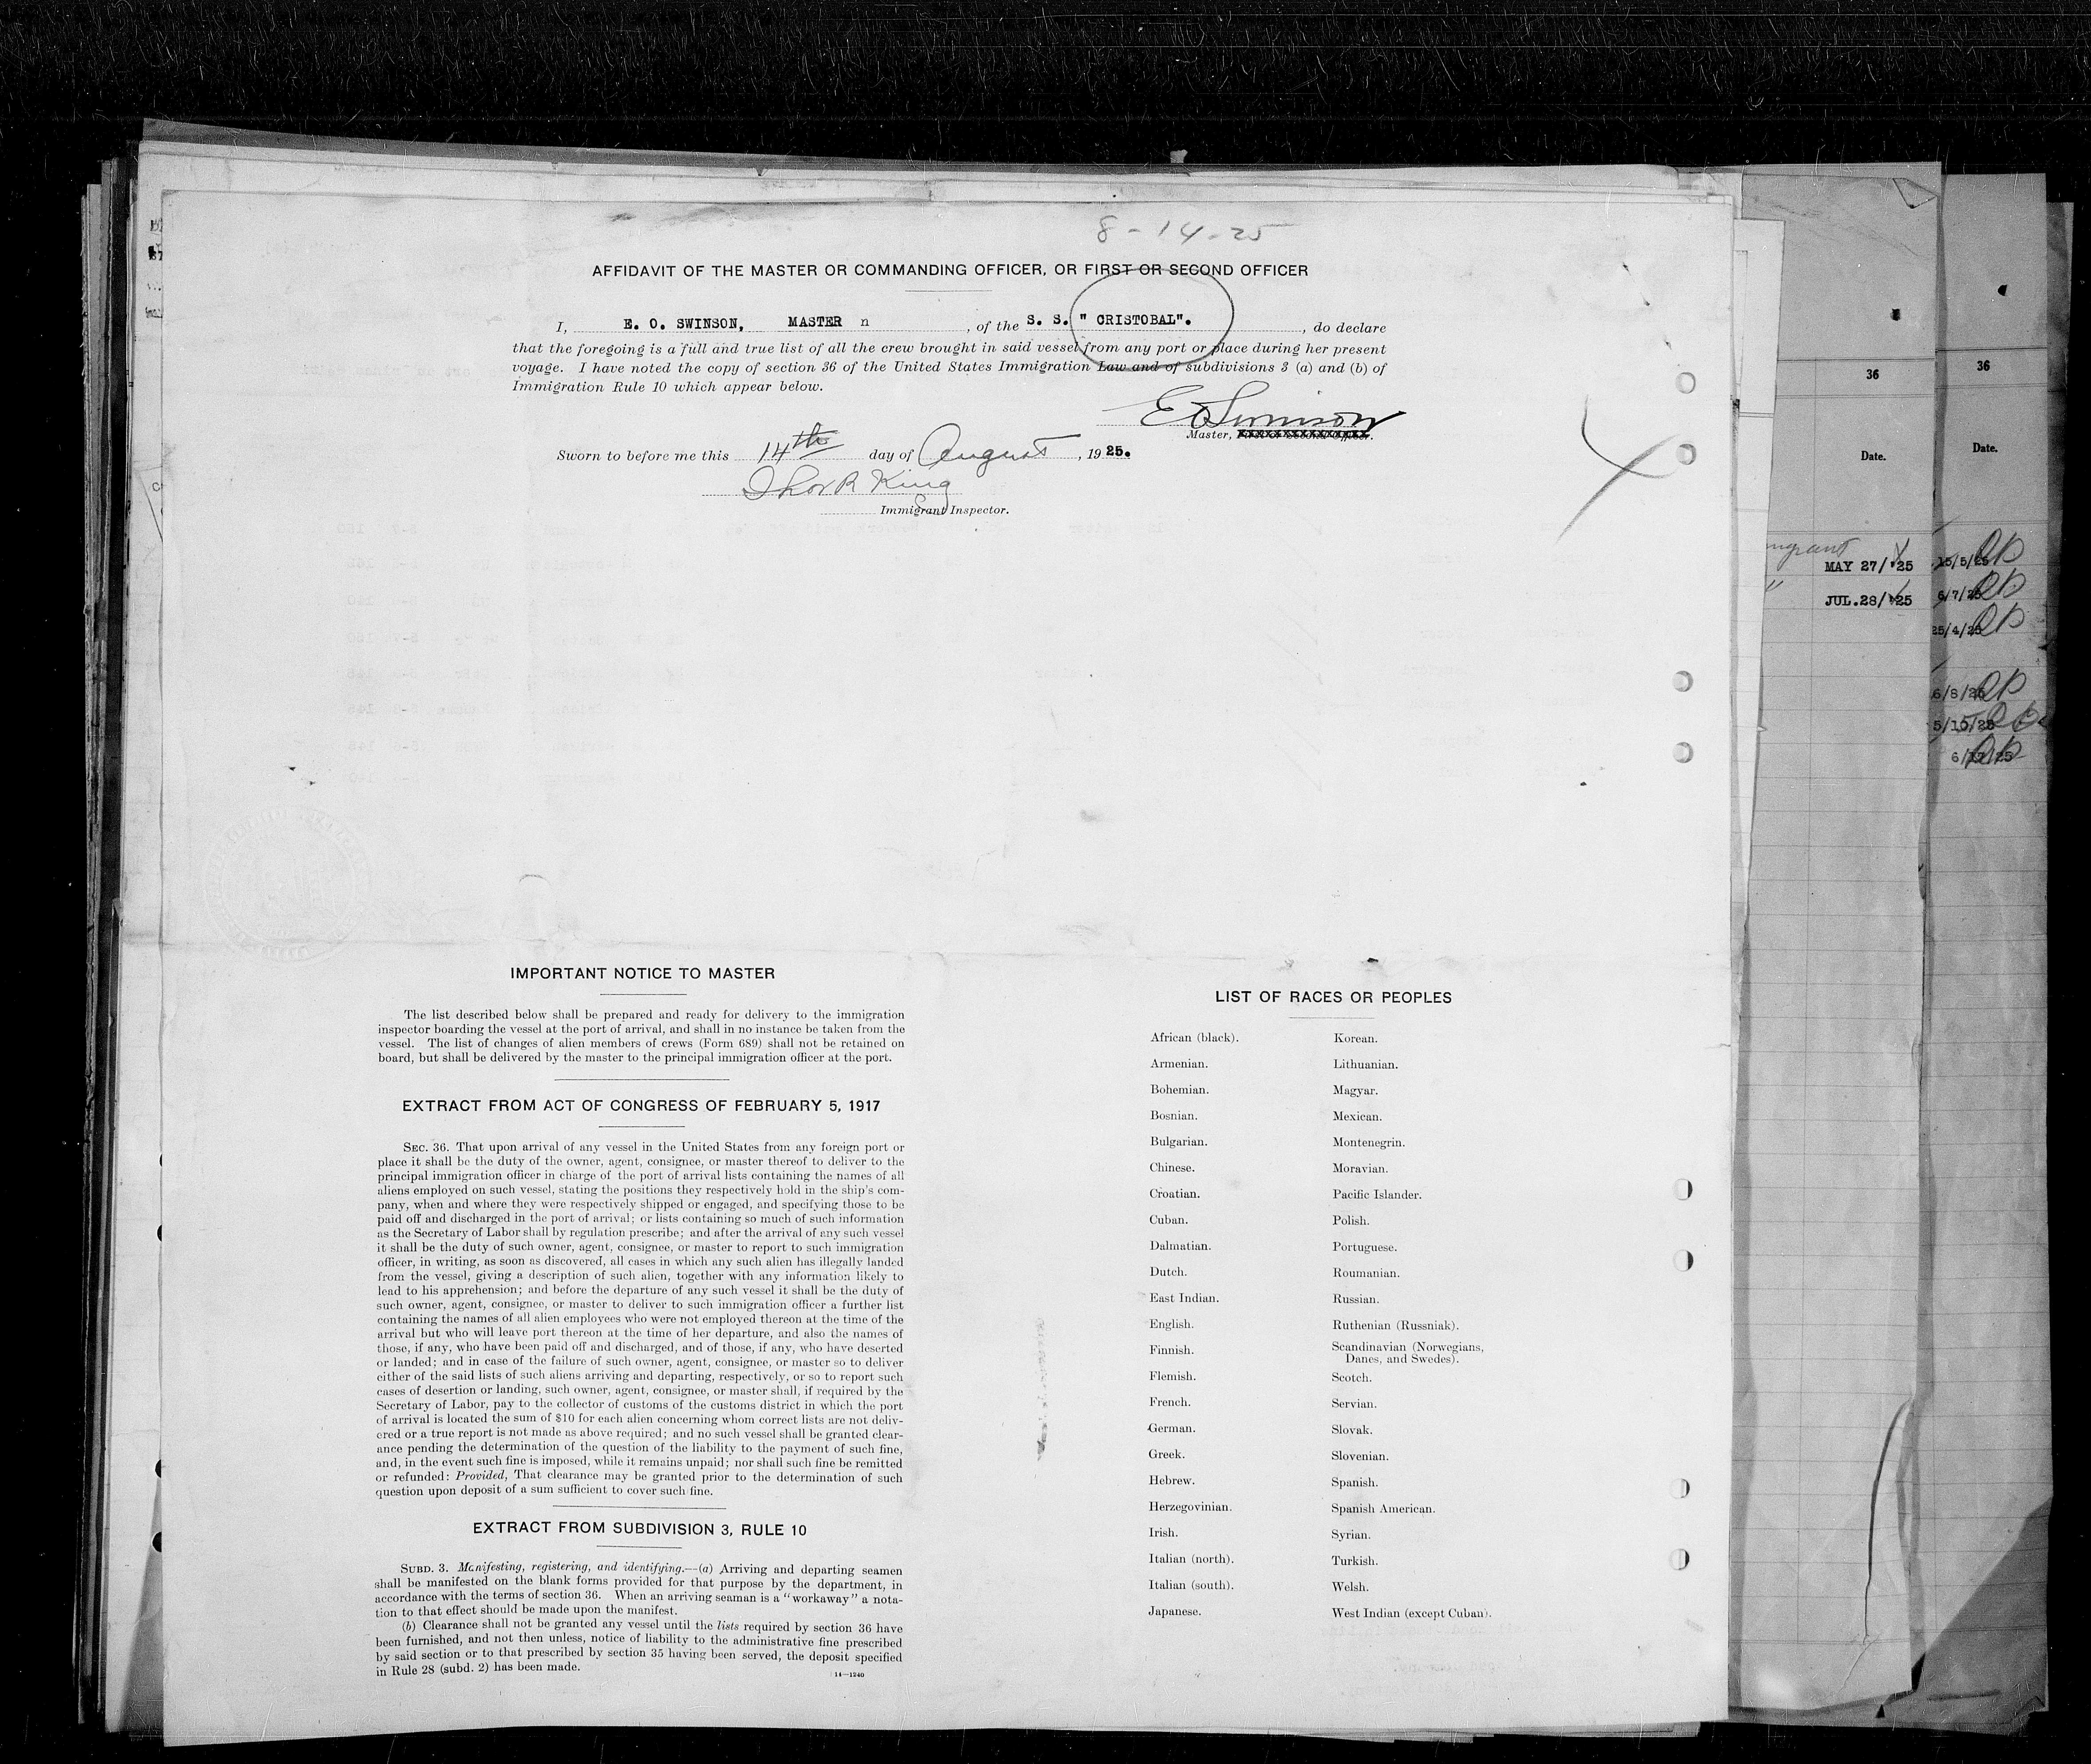 8-14-25
AFFIDAVIT OF THE MASTER OR COMMANDING OFFICER, OR FIRST OR SECOND OFFICER
I, E. O. SWINSON, MASTER n, of the S. S. " CRISTOBAL"., do declare
that the foregoing is a full and true list of all the crew brought in said vessel from any port or place during her present
voyage. I have noted the copy of section 36 of the United States Immigration Law and of subdivisions 3 (a) and (b) of
Immigration Rule 10 which appear below.
E O Swinson
Master,
Sworn to before me this 14th day of August, 1925.
King
Immigrant Inspector.
IMPORTANT NOTICE TO MASTER
The list described below shall be prepared and ready for delivery to the immigration
inspector boarding the vessel at the port of arrival, and shall in no instance be taken from the
vessel. The list of changes of alien members of crews (Form 689) shall not be retained on
board, but shall be delivered by the master to the principal immigration officer at the port.
EXTRACT FROM ACT OF CONGRESS OF FEBRUARY 5, 1917
SEC. 36. That upon arrival of any vessel in the United States from any foreign port or
place it shall be the duty of the owner, agent, consignee, or master thereof to deliver to the
principal immigration officer in charge of the port of arrival lists containing the names of all
aliens employed on such vessel, stating the positions they respectively hold in the ship's com-
pany, when and where they were respectively shipped or engaged, and specifying those to be
paid off and discharged in the port of arrival; or lists containing so much of such information
as the Secretary of Labor shall by regulation prescribe; and after the arrival of any such vessel
it shall be the duty of such owner, agent, consignee, or master to report to such immigration
officer, in writing, as soon as discovered, all cases in which any such alien has illegally landed
from the vessel, giving a description of such alien, together with any information likely to
lead to his apprehension; and before the departure of any such vessel it shall be the duty of
such owner, agent, consignee, or master to deliver to such immigration officer a further list
containing the names of all alien employees who were not employed thereon at the time of the
arrival but who will leave port thereon at the time of her departure, and also the names of
those, if any, who have been paid off and discharged, and of those, if any, who have deserted
or landed; and in case of the failure of such owner, agent, consignee, or master so to deliver
either of the said lists of such aliens arriving and departing, respectively, or so to report such
cases of desertion or landing, such owner, agent, consignee, or master shall, if required by the
Secretary of Labor, pay to the collector of customs of the customs district in which the port
of arrival is located the sum of $10 for each alien concerning whom correct lists are not deliv-
ered or a true report is not made as above required; and no such vessel shall be granted clear-
ance pending the determination of the question of the liability to the payment of such fine,
and, in the event such fine is imposed, while it remains unpaid; nor shall such fine be remitted
or refunded: Provided, That clearance may be granted prior to the determination of such
question upon deposit of a sum sufficient to cover such fine.
EXTRACT FROM SUBDIVISION 3, RULE 10
SUBD. 3. Manifesting, registering, and identifying.—(a) Arriving and departing seamen
shall be manifested on the blank forms provided for that purpose by the department, in
accordance with the terms of section 36. When an arriving seaman is a "workaway" a nota-
tion to that effect should be made upon the manifest.
(b) Clearance shall not be granted any vessel until the lists required by section 36 have
been furnished, and not then unless, notice of liability to the administrative fine prescribed
by said section or to that prescribed by section 35 having been served, the deposit specified
in Rule 28 (subd. 2) has been made.
14—1240
LIST OF RACES OR PEOPLES
African (black).
Armenian.
Bohemian.
Bosnian.
Bulgarian.
Chinese.
Croatian.
Cuban.
Dalmatian.
Dutch.
East Indian.
English.
Finnish.
Flemish.
French.
German.
Greek.
Hebrew.
Herzegovinian.
Irish.
Italian (north).
Italian (south).
Japanese.
Korean.
Lithuanian.
Magyar.
Mexican.
Montenegrin.
Moravian.
Pacific Islander.
Polish.
Portuguese.
Roumanian.
Russian.
Ruthenian (Russniak).
Scandinavian (Norwegians,
Danes, and Swedes).
Scotch.
Servian.
Slovak.
Slovenian.
Spanish.
Spanish American.
Syrian.
Turkish.
Welsh.
West Indian (except Cuban).
36
Date.
MAY 27/'25
JUL.28/'25
36
Date.
15/5/25
6/7/25
25/4/25
6/8/25